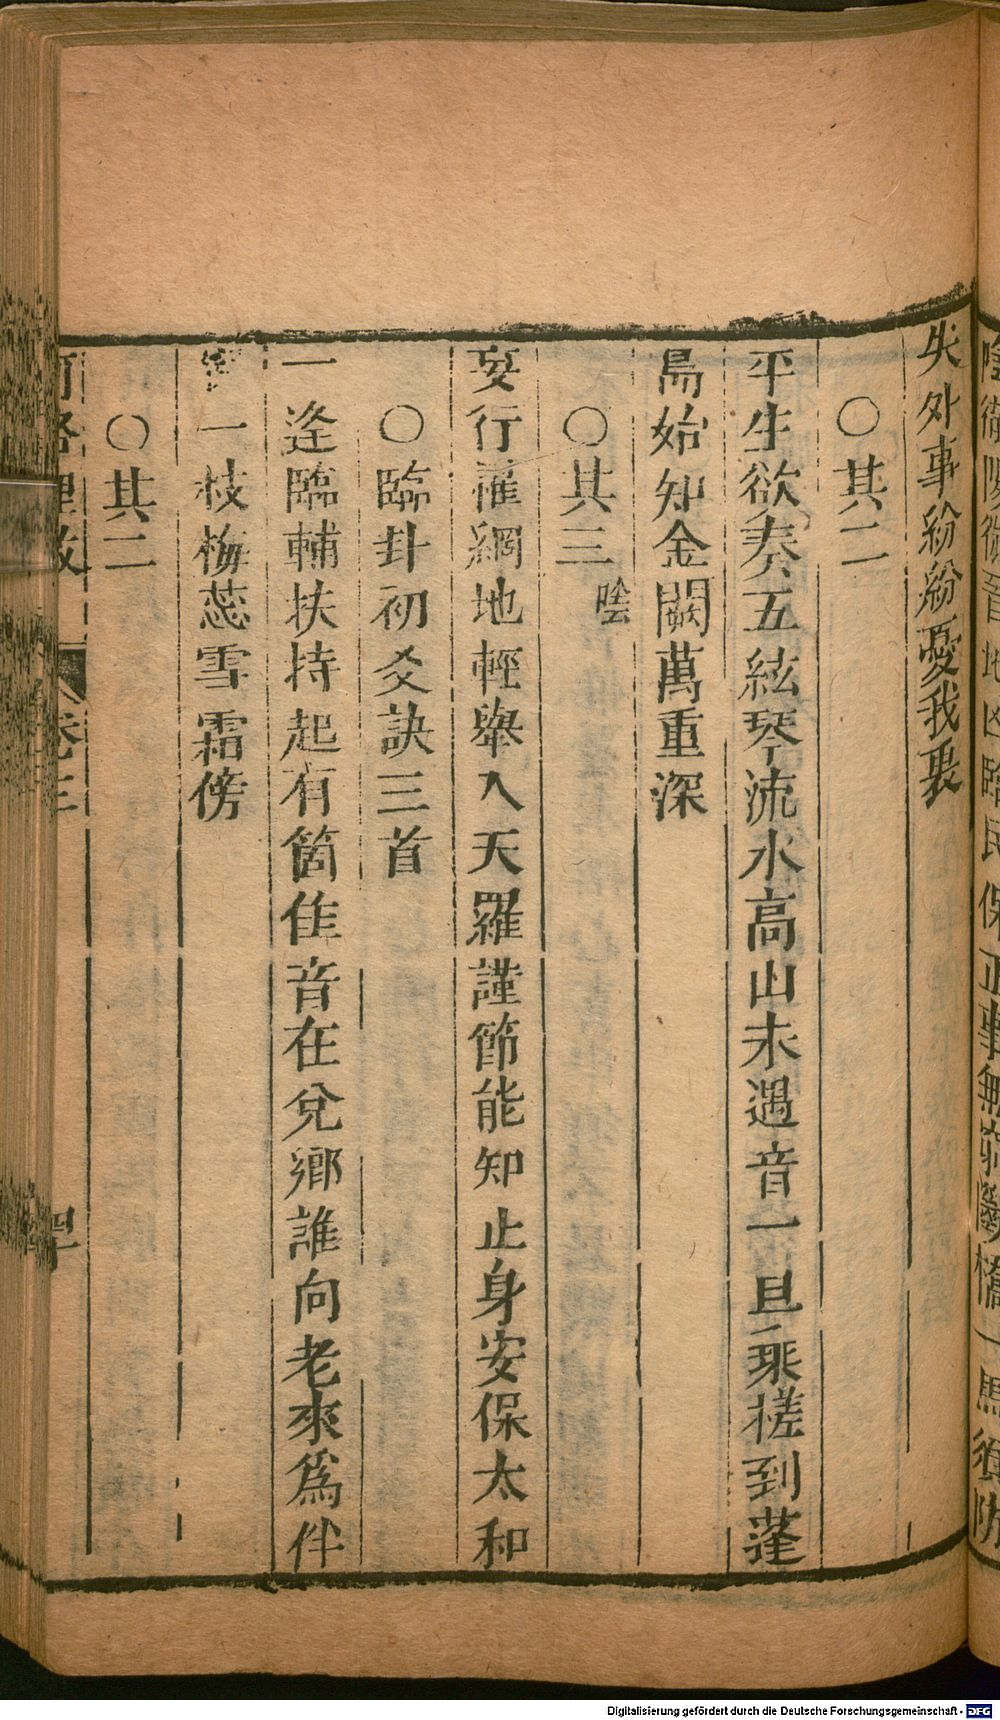 陰衛陽衛吾地凶臨民保正事無窮斷橋一馬須防
失外事紛紛憂我裏
〇其二
平生欲奏五絃琴流水高山未遇音一旦乘槎到蓬
島始知金闕萬重深
〇其三 陰
妄行罹網地輕舉入天羅謹節能知止身安保太和
〇臨卦初爻訣三首
一逢臨輔扶持起有箇佳音在兌鄉誰向老來爲伴
一枝梅蕊雪霜傍
〇其二
河洛理數 卷三
Digitalisierung gefördert durch die Deutsche Forschungsgemeinschaft - DFG